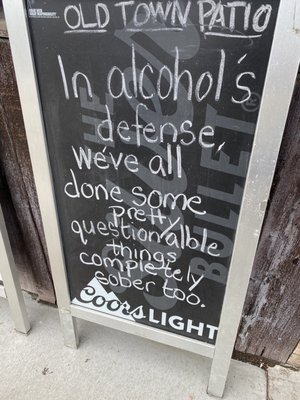 OLD TOWN PATIO
In alcohol's
defense,
we've all
done some
pretty
questionalble
things
completely
sober too.
Coors LIGHT
THE
SILVER
BULLET